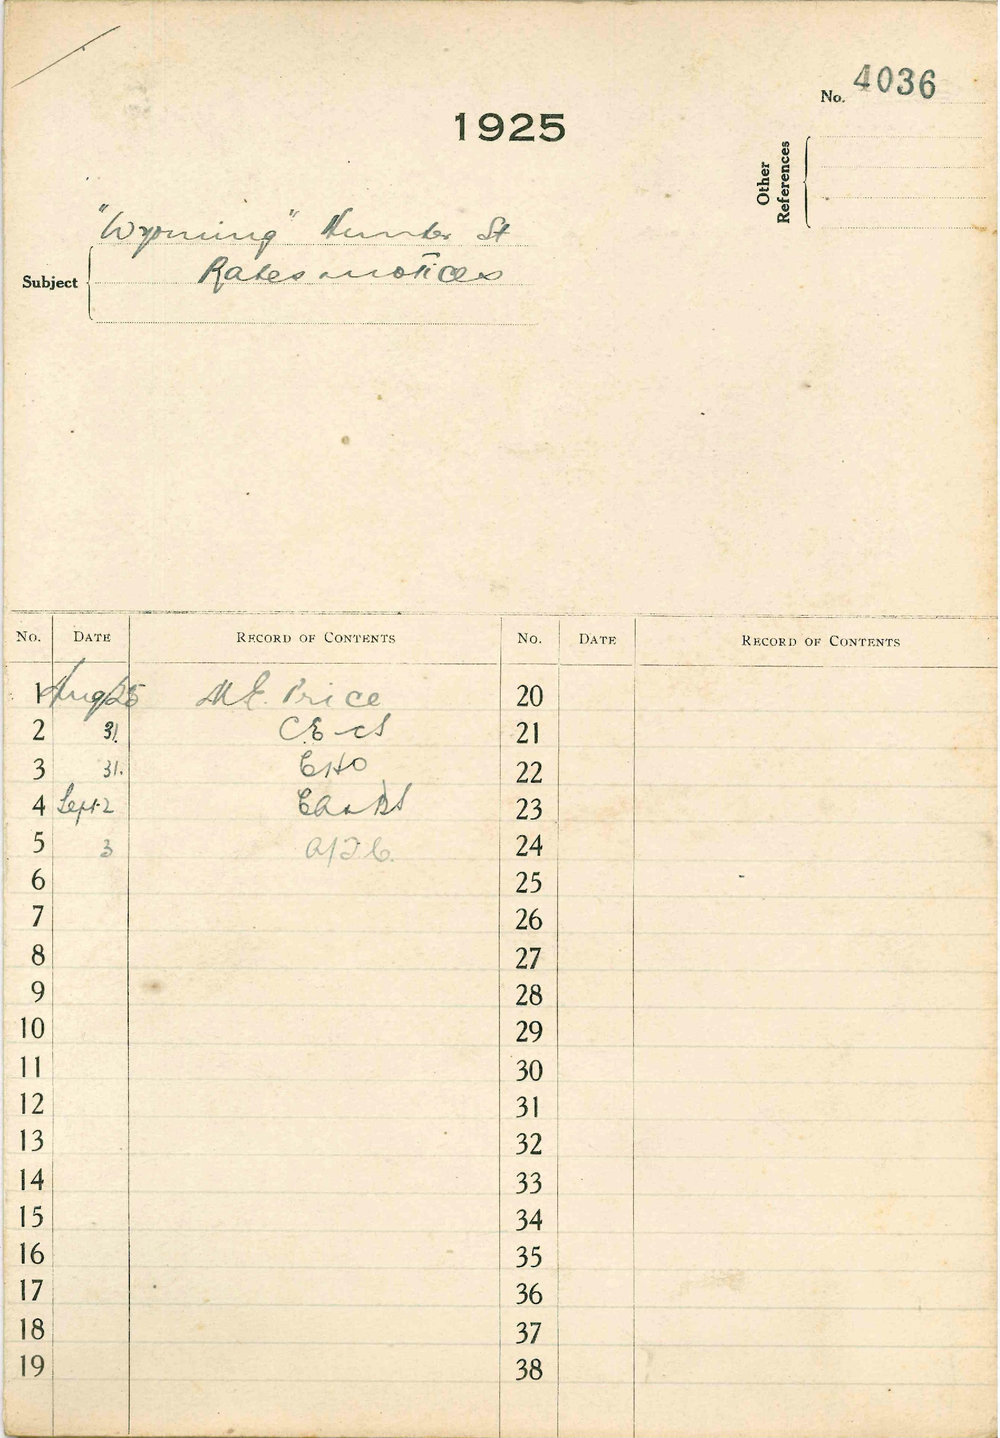 No. 4036
1925
Other References
"Wyoming" Hunter St
Subject
Rates notices
No. Date Record of Contents No. Date Record of Contents
1 Aug 25 M E Price 20
2 31. 21
3 31. EHO 22
4 Sept 2 23
5 3 24
6 25
7 26
8 27
9 28
10 29
11 30
12 31
13 32
14 33
15 34
16 35
17 36
18 37
19 38